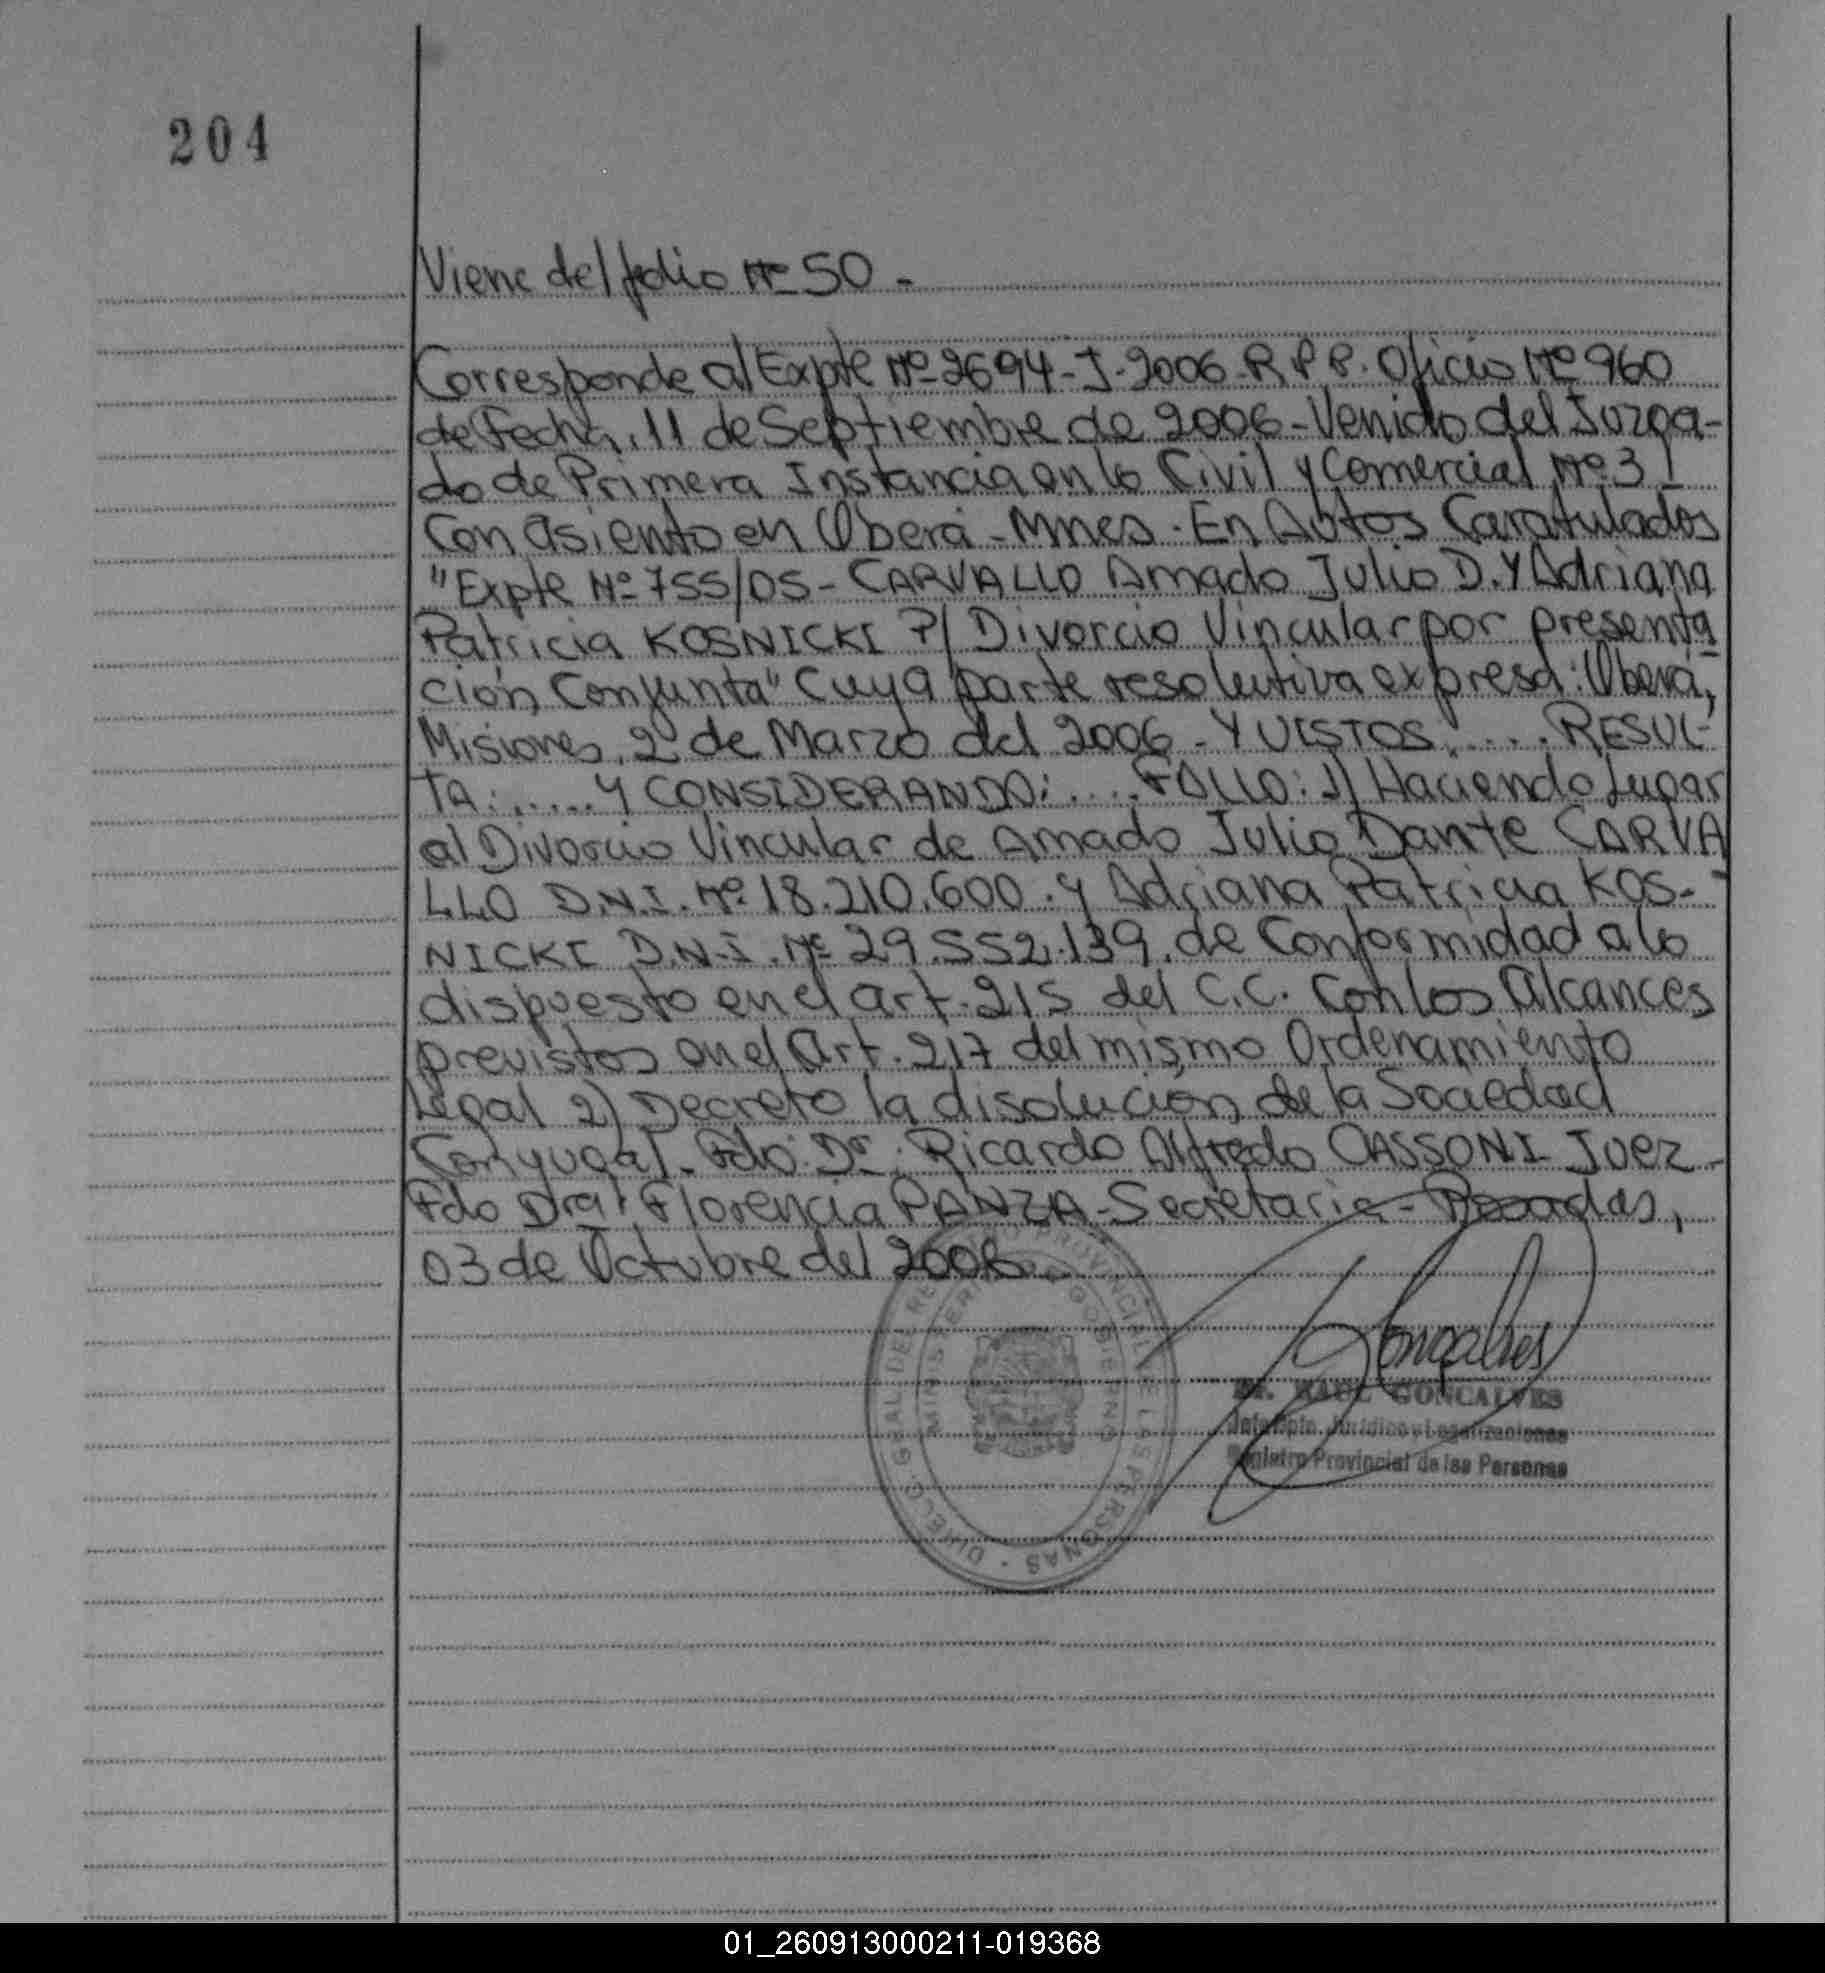 204
Viene del folio Nº 50 -
Corresponde al Expte Nº 2694-J-2006-R.P.P. Oficio Nº 960
de Fecha, 11 de Septiembre de 2006-Venido del Juzga-
do de Primera Instancia en lo Civil y Comercial Nº 3
Con asiento en Oberá - Mnes. En Autos Caratulados
"Expte Nº 755/05 - CARVALLO Amado Julio D. Y Adriana
Patricia KOSNICKI P/ Divorcio Vincular por presenta
ción Conjunta" Cuya parte resolutiva expresa: Oberá,
Misiones, 2 de Marzo del 2006 - Y VISTOS: .... RESUL-
TA: ..... Y CONSIDERANDO: .... FALLO: 1) Haciendo Lugar
al Divorcio Vincular de Amado Julio Dante CARVA
LLO D.N.I. Nº 18.210.600. y Adriana Patricia KOS-
NICKI D.N.I. Nº 29.552.139. de Conformidad a lo
dispuesto en el art. 215 del C.C. Con los Alcances
previstos en el Art. 217 del mismo Ordenamiento
Legal 2) Decreto la disolución de la Sociedad
Conyugal. Fdo: Dr. Ricardo Alfredo CASSONI - Juez -
Fdo Dra: Florencia PANZA - Secretaria - Posadas,
03 de Octubre del 2006
DIREC. GRAL. DEL REGISTRO PROVINCIAL DE LAS PERSONAS
MINISTERIO DE GOBIERNO
Goncalves
Dr. RAUL GONCALVES
Jefe Dpto. Jurídico y Legalizaciones
Registro Provincial de las Personas
01_260913000211-019368